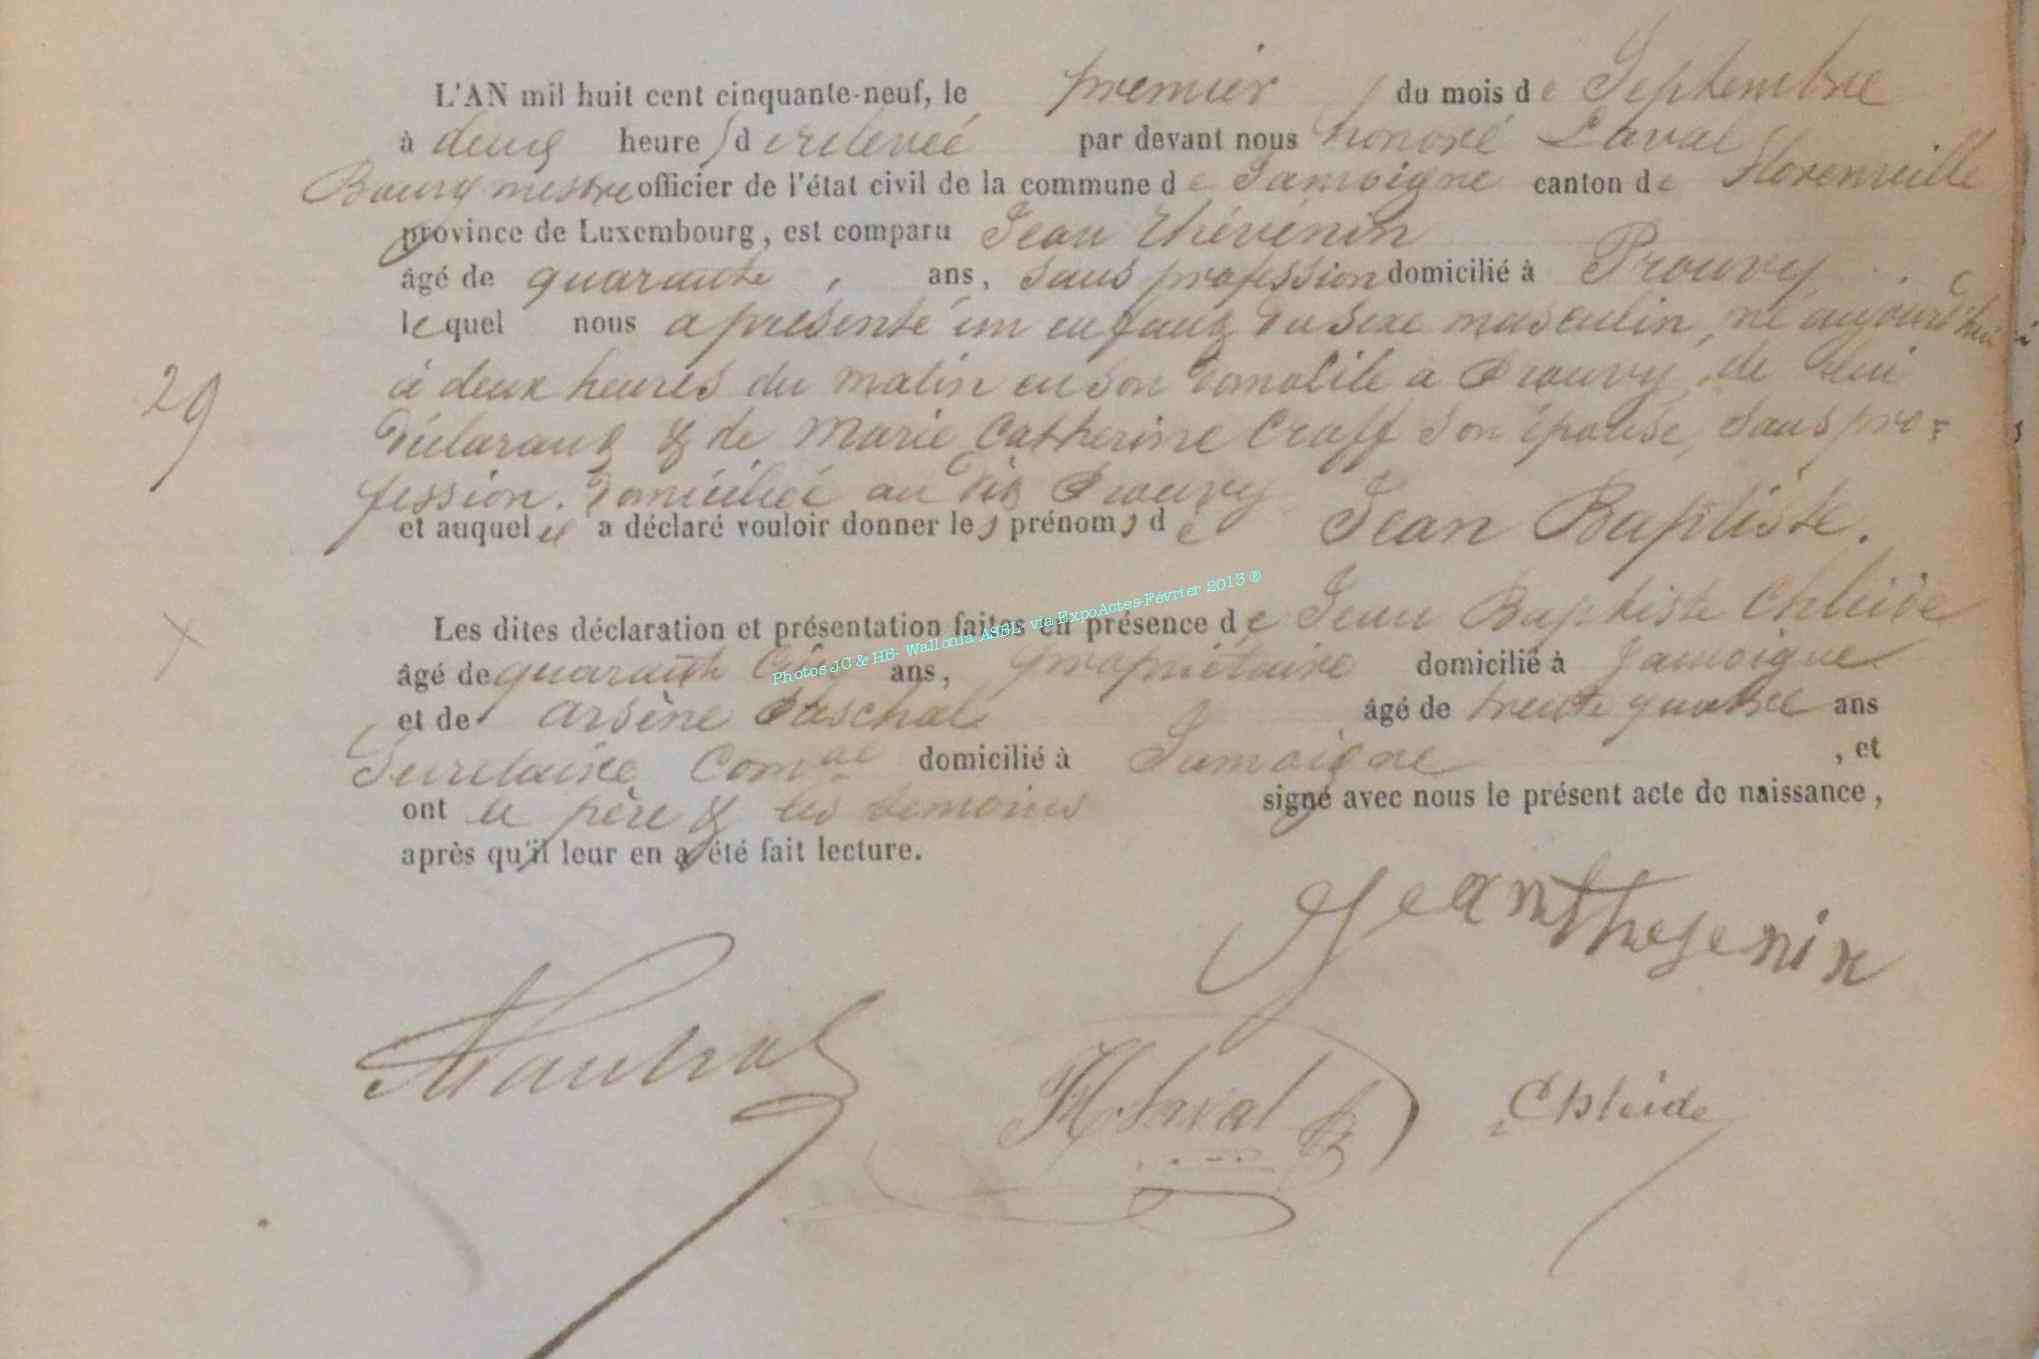 L'AN mil huit cent cinquante-neuf, le premier du mois de Septembre
à deux heures de relevée par devant nous honoré Laval
Bourgmestre officier de l'état civil de la commune de Jamoigne canton de Florenville
province de Luxembourg, est comparu Jean Thévenin
âgé de quarante ans, sans profession domicilié à Prouvy
lequel nous a présenté un enfant du sexe masculin, né aujourd'hui
à deux heures du matin en son domicile à Prouvy, de lui
déclarant & de Marie Catherine Craff son épouse, sans pro=
fession. domiciliée au dit Prouvy
et auquel il a déclaré vouloir donner les prénoms de Jean Baptiste.
29
Les dites déclaration et présentation faites en présence de Jean Baptiste Chleide
âgé de quarante ans, propriétaire domicilié à Jamoigne
et de Arsène âgé de trente quatre ans
Secrétaire Comal domicilié à Jamoigne, et
ont le père & les témoins signé avec nous le présent acte de naissance,
après qu'il leur en a été fait lecture.
Photos JC & HB- Wallonia ASBL via ExpoActes-Février 2013 ®
Jean thevenin
HLaval